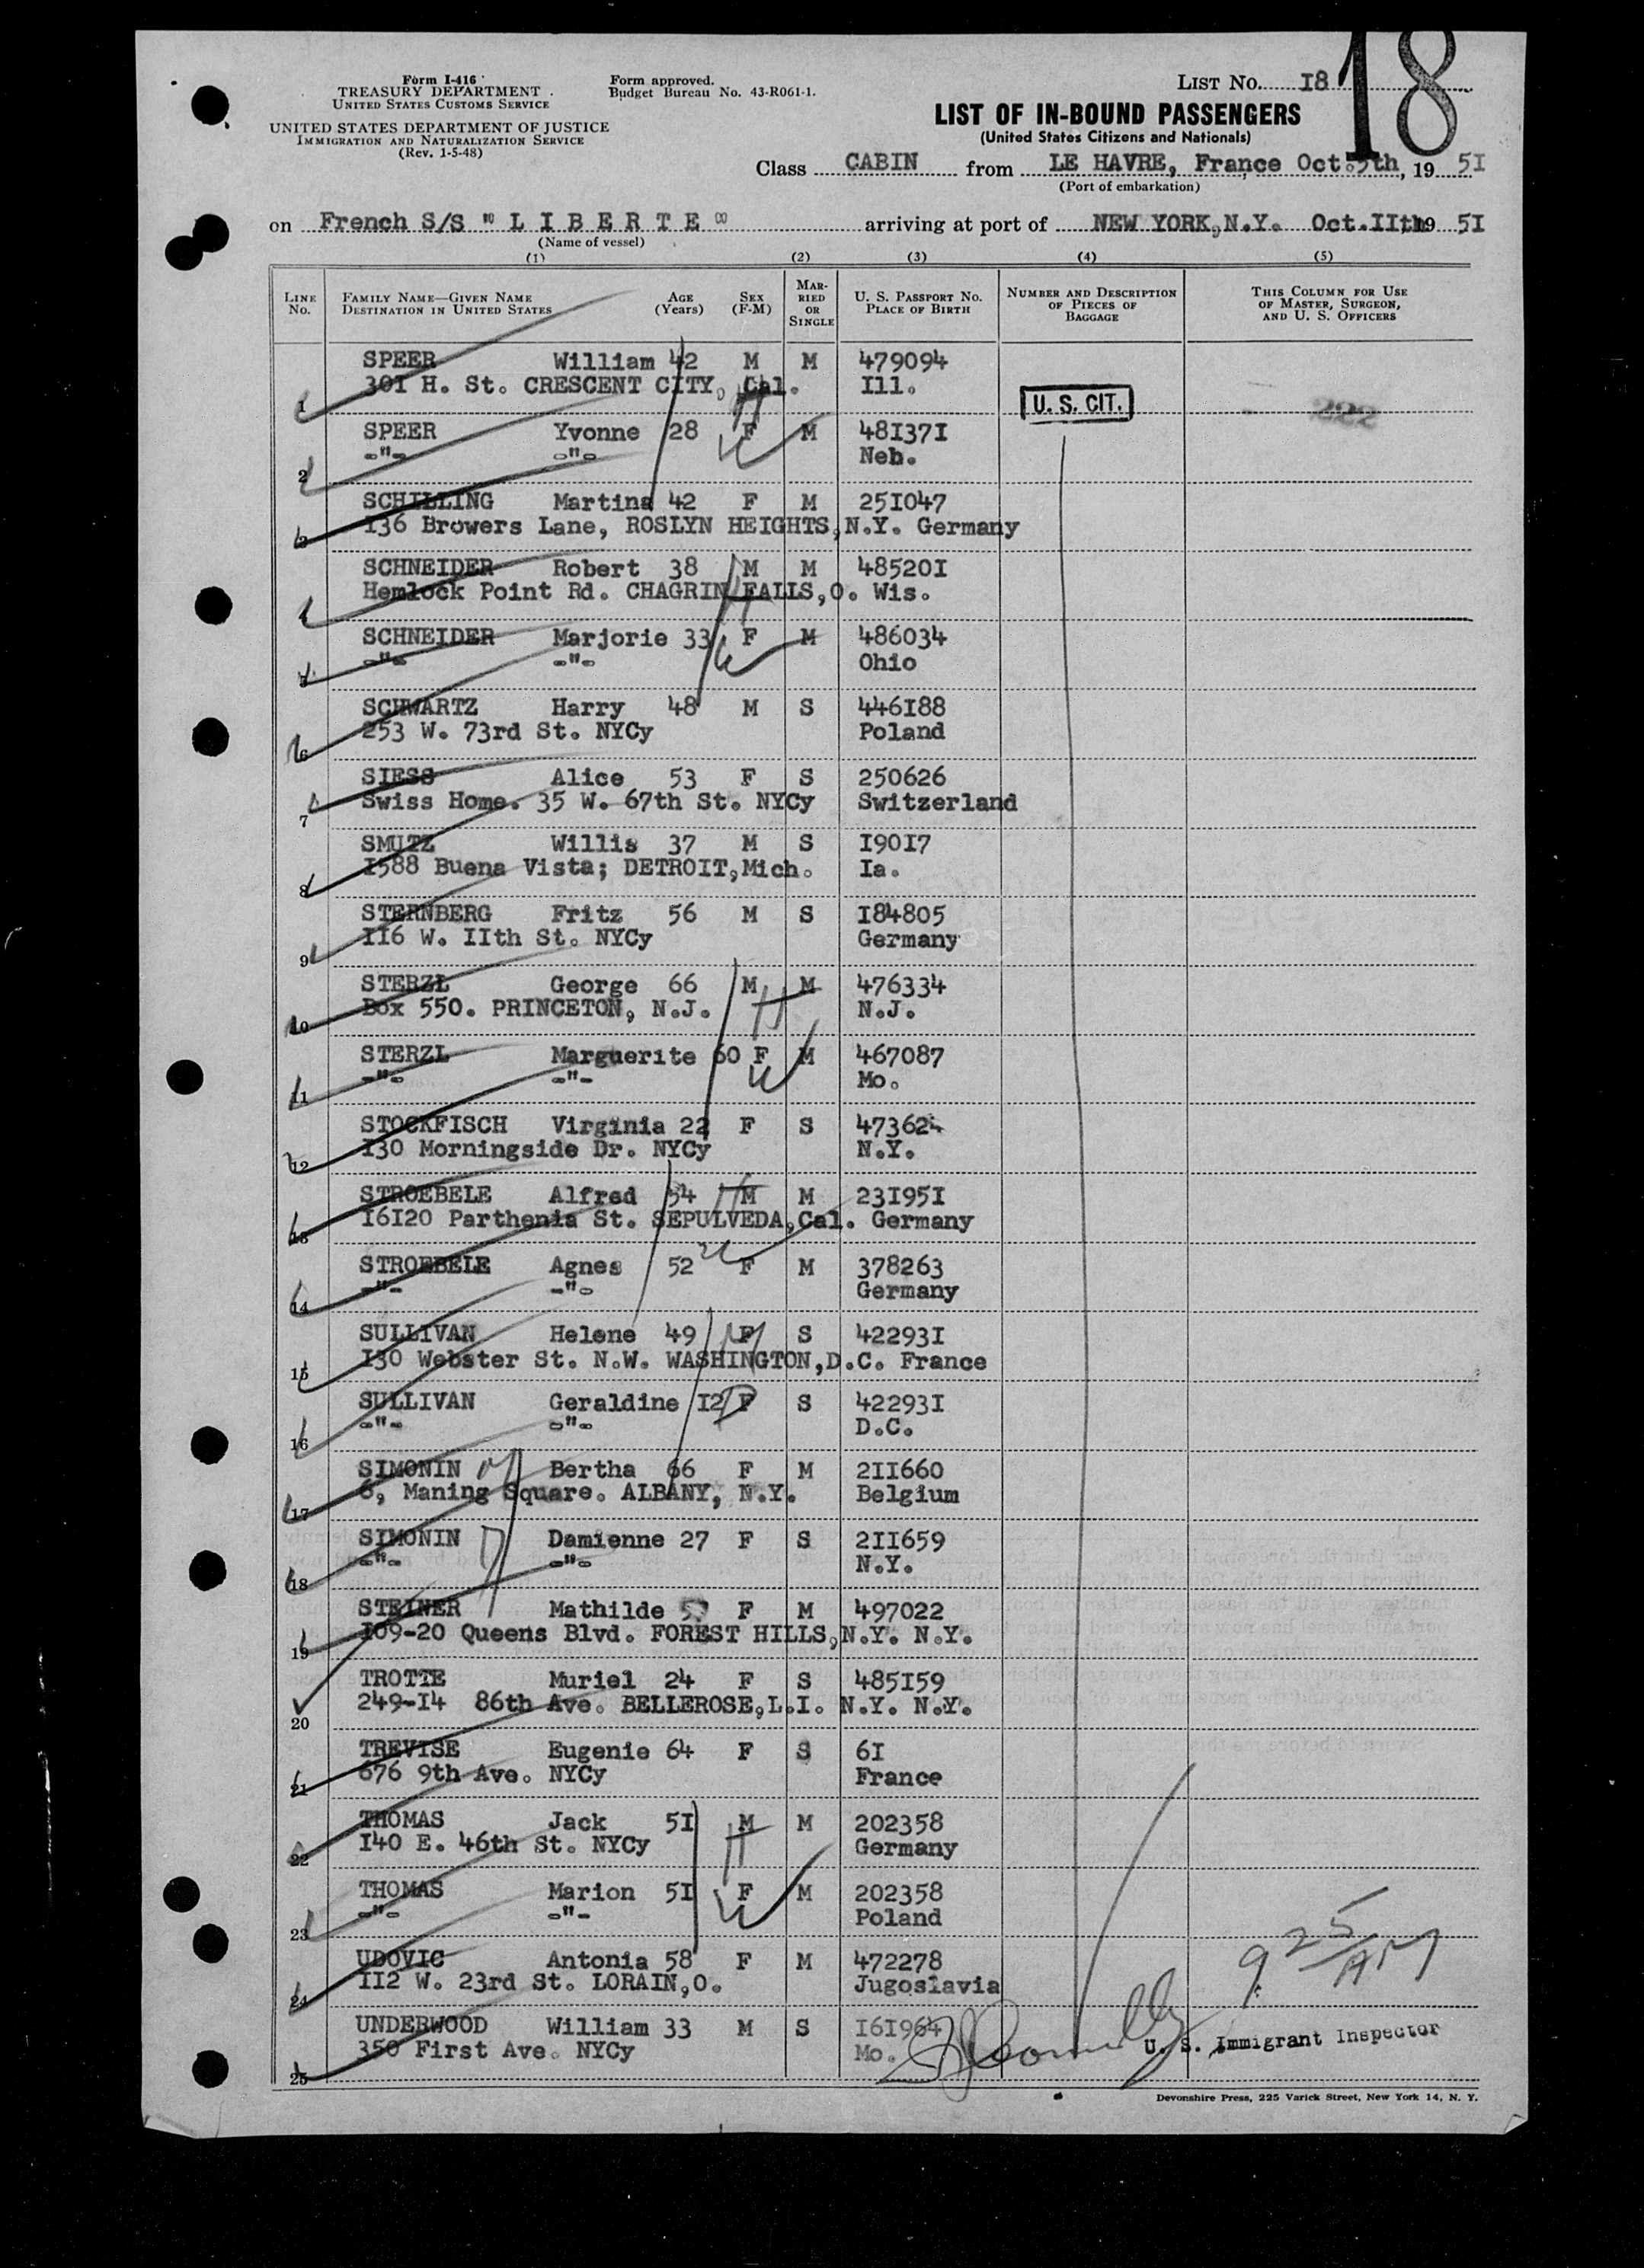 Form I-416
TREASURY DEPARTMENT
UNITED STATES CUSTOMS SERVICE
UNITED STATES DEPARTMENT OF JUSTICE
IMMIGRATION AND NATURALIZATION SERVICE
(Rev. 1-5-48)
Form approved.
Budget Bureau No. 43-R061-1.
LIST NO. I8
18
LIST OF IN-BOUND PASSENGERS
(United States Citizens and Nationals)
Class CABIN from LE HAVRE, France Oct. 5th, 19 5I
(Port of embarkation)
on French S/S " L I B E R T E " arriving at port of NEW YORK,N.Y. Oct.IIth 19 5I
(Name of vessel)
(1) (2) (3) (4) (5)
LINE NO. FAMILY NAME—GIVEN NAME DESTINATION IN UNITED STATES AGE (Years) SEX (F-M) MARRIED OR SINGLE U. S. PASSPORT NO. PLACE OF BIRTH NUMBER AND DESCRIPTION OF PIECES OF BAGGAGE THIS COLUMN FOR USE OF MASTER, SURGEON, AND U. S. OFFICERS
SPEER William 42 M M 479094
1 30I H. St. CRESCENT CITY, Cal. Ill.
U. S. CIT.
222
SPEER Yvonne 28 F M 48I37I
2 -"- -"- Neb.
SCHILLING Martina 42 F M 25I047
3 I36 Browers Lane, ROSLYN HEIGHTS,N.Y. Germany
SCHNEIDER Robert 38 M M 48520I
4 Hemlock Point Rd. CHAGRIN FALLS,O. Wis.
SCHNEIDER Marjorie 33 F M 486034
5 -"- -"- Ohio
SCHWARTZ Harry 48 M S 446I88
6 253 W. 73rd St. NYCy Poland
SIESS Alice 53 F S 250626
7 Swiss Home. 35 W. 67th St. NYCy Switzerland
SMUTZ Willis 37 M S I90I7
8 I588 Buena Vista; DETROIT,Mich. Ia.
STERNBERG Fritz 56 M S I84805
9 II6 W. IIth St. NYCy Germany
STERZL George 66 M M 476334
10 Box 550. PRINCETON, N.J. N.J.
STERZL Marguerite 60 F M 467087
11 -"- -"- Mo.
STOCKFISCH Virginia 22 F S 473624
12 I30 Morningside Dr. NYCy N.Y.
STROEBELE Alfred 54 M M 23I95I
13 I6I20 Parthenia St. SEPULVEDA,Cal. Germany
STROEBELE Agnes 52 F M 378263
14 -"- -"- Germany
SULLIVAN Helene 49 F S 42293I
15 I30 Webster St. N.W. WASHINGTON,D.C. France
SULLIVAN Geraldine I2 F S 42293I
16 -"- -"- D.C.
SIMONIN Bertha 66 F M 2II660
17 6, Maning Square. ALBANY, N.Y. Belgium
SIMONIN Damienne 27 F S 2II659
18 -"- -"- N.Y.
STEINER Mathilde F M 497022
19 I09-20 Queens Blvd. FOREST HILLS,N.Y. N.Y.
TROTTE Muriel 24 F S 485I59
20 249-I4 86th Ave. BELLEROSE,L.I. N.Y. N.Y.
TREVISE Eugenie 64 F S 6I
21 676 9th Ave. NYCy France
THOMAS Jack 5I M M 202358
22 I40 E. 46th St. NYCy Germany
THOMAS Marion 5I F M 202358
23 -"- -"- Poland
UDOVIC Antonia 58 F M 472278
24 II2 W. 23rd St. LORAIN,O. Jugoslavia
9 25/AM
UNDERWOOD William 33 M S I6I964
25 350 First Ave. NYCy Mo.
U. S. Immigrant Inspector
Devonshire Press, 225 Varick Street, New York 14, N. Y.